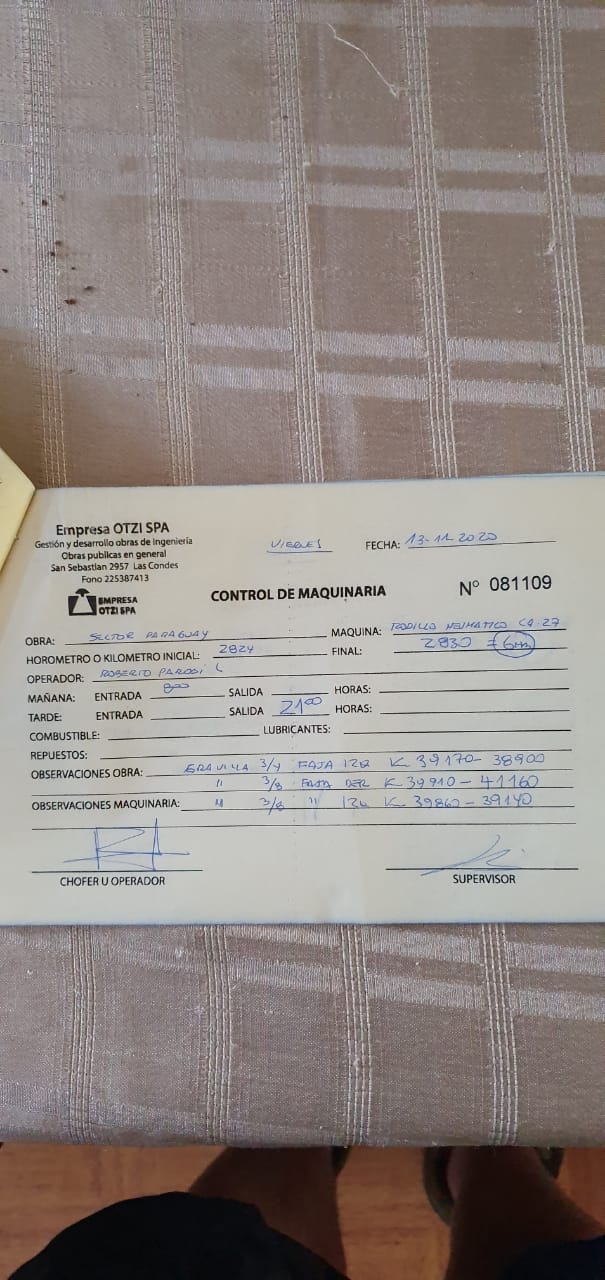 Empresa OTZI SPA
Gestión y desarrollo obras de ingeniería
Obras publicas en general
San Sebastian 2957 Las Condes
Fono 225387413
EMPRESA
OTZI SPA
VIERNES
FECHA: 13-11-2020
CONTROL DE MAQUINARIA
Nº 081109
OBRA: SECTOR PARAGUAY MAQUINA: RODILLO NEUMATICO
HOROMETRO O KILOMETRO INICIAL: 2824 FINAL: 2830
OPERADOR: ROBERTO PARODI
MAÑANA: ENTRADA 800 SALIDA HORAS:
TARDE: ENTRADA SALIDA 2100 HORAS:
COMBUSTIBLE: LUBRICANTES:
REPUESTOS:
OBSERVACIONES OBRA: GRAVILLA 3/4 FAJA IZQ K 39170- 38900
" 3/8 FAJA DER K 39910 - 41160
OBSERVACIONES MAQUINARIA: " 3/8 " K 39860 - 39140
CHOFER U OPERADOR
SUPERVISOR